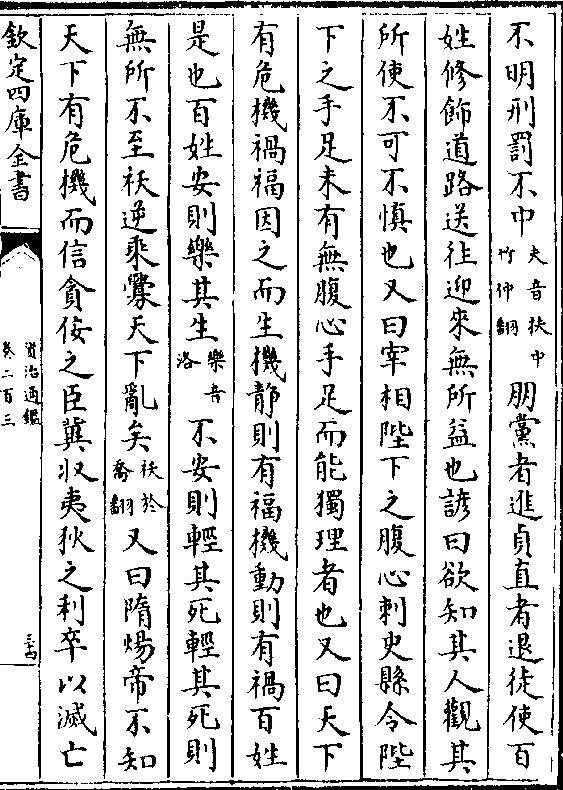 不明刑罰不中夫音扶中竹仲翻朋黨者進貞直者退徒使百
姓修飾道路送往迎來無所益也諺曰欲知其人觀其
所使不可不慎也又曰宰相陛下之腹心刺史縣令陛
下之手足未有無腹心手足而能獨理者也又曰天下
有危機禍福因之而生機静則有福機動則有禍百姓
是也百姓安則樂其生樂音洛不安則輕其死輕其死則
無所不至祅逆乘釁天下亂矣祅於喬翻又曰隋煬帝不知
天下有危機而信貪佞之臣冀収夷狄之利卒以滅亡
欽定四庫全書
資治通鑑
卷二百三